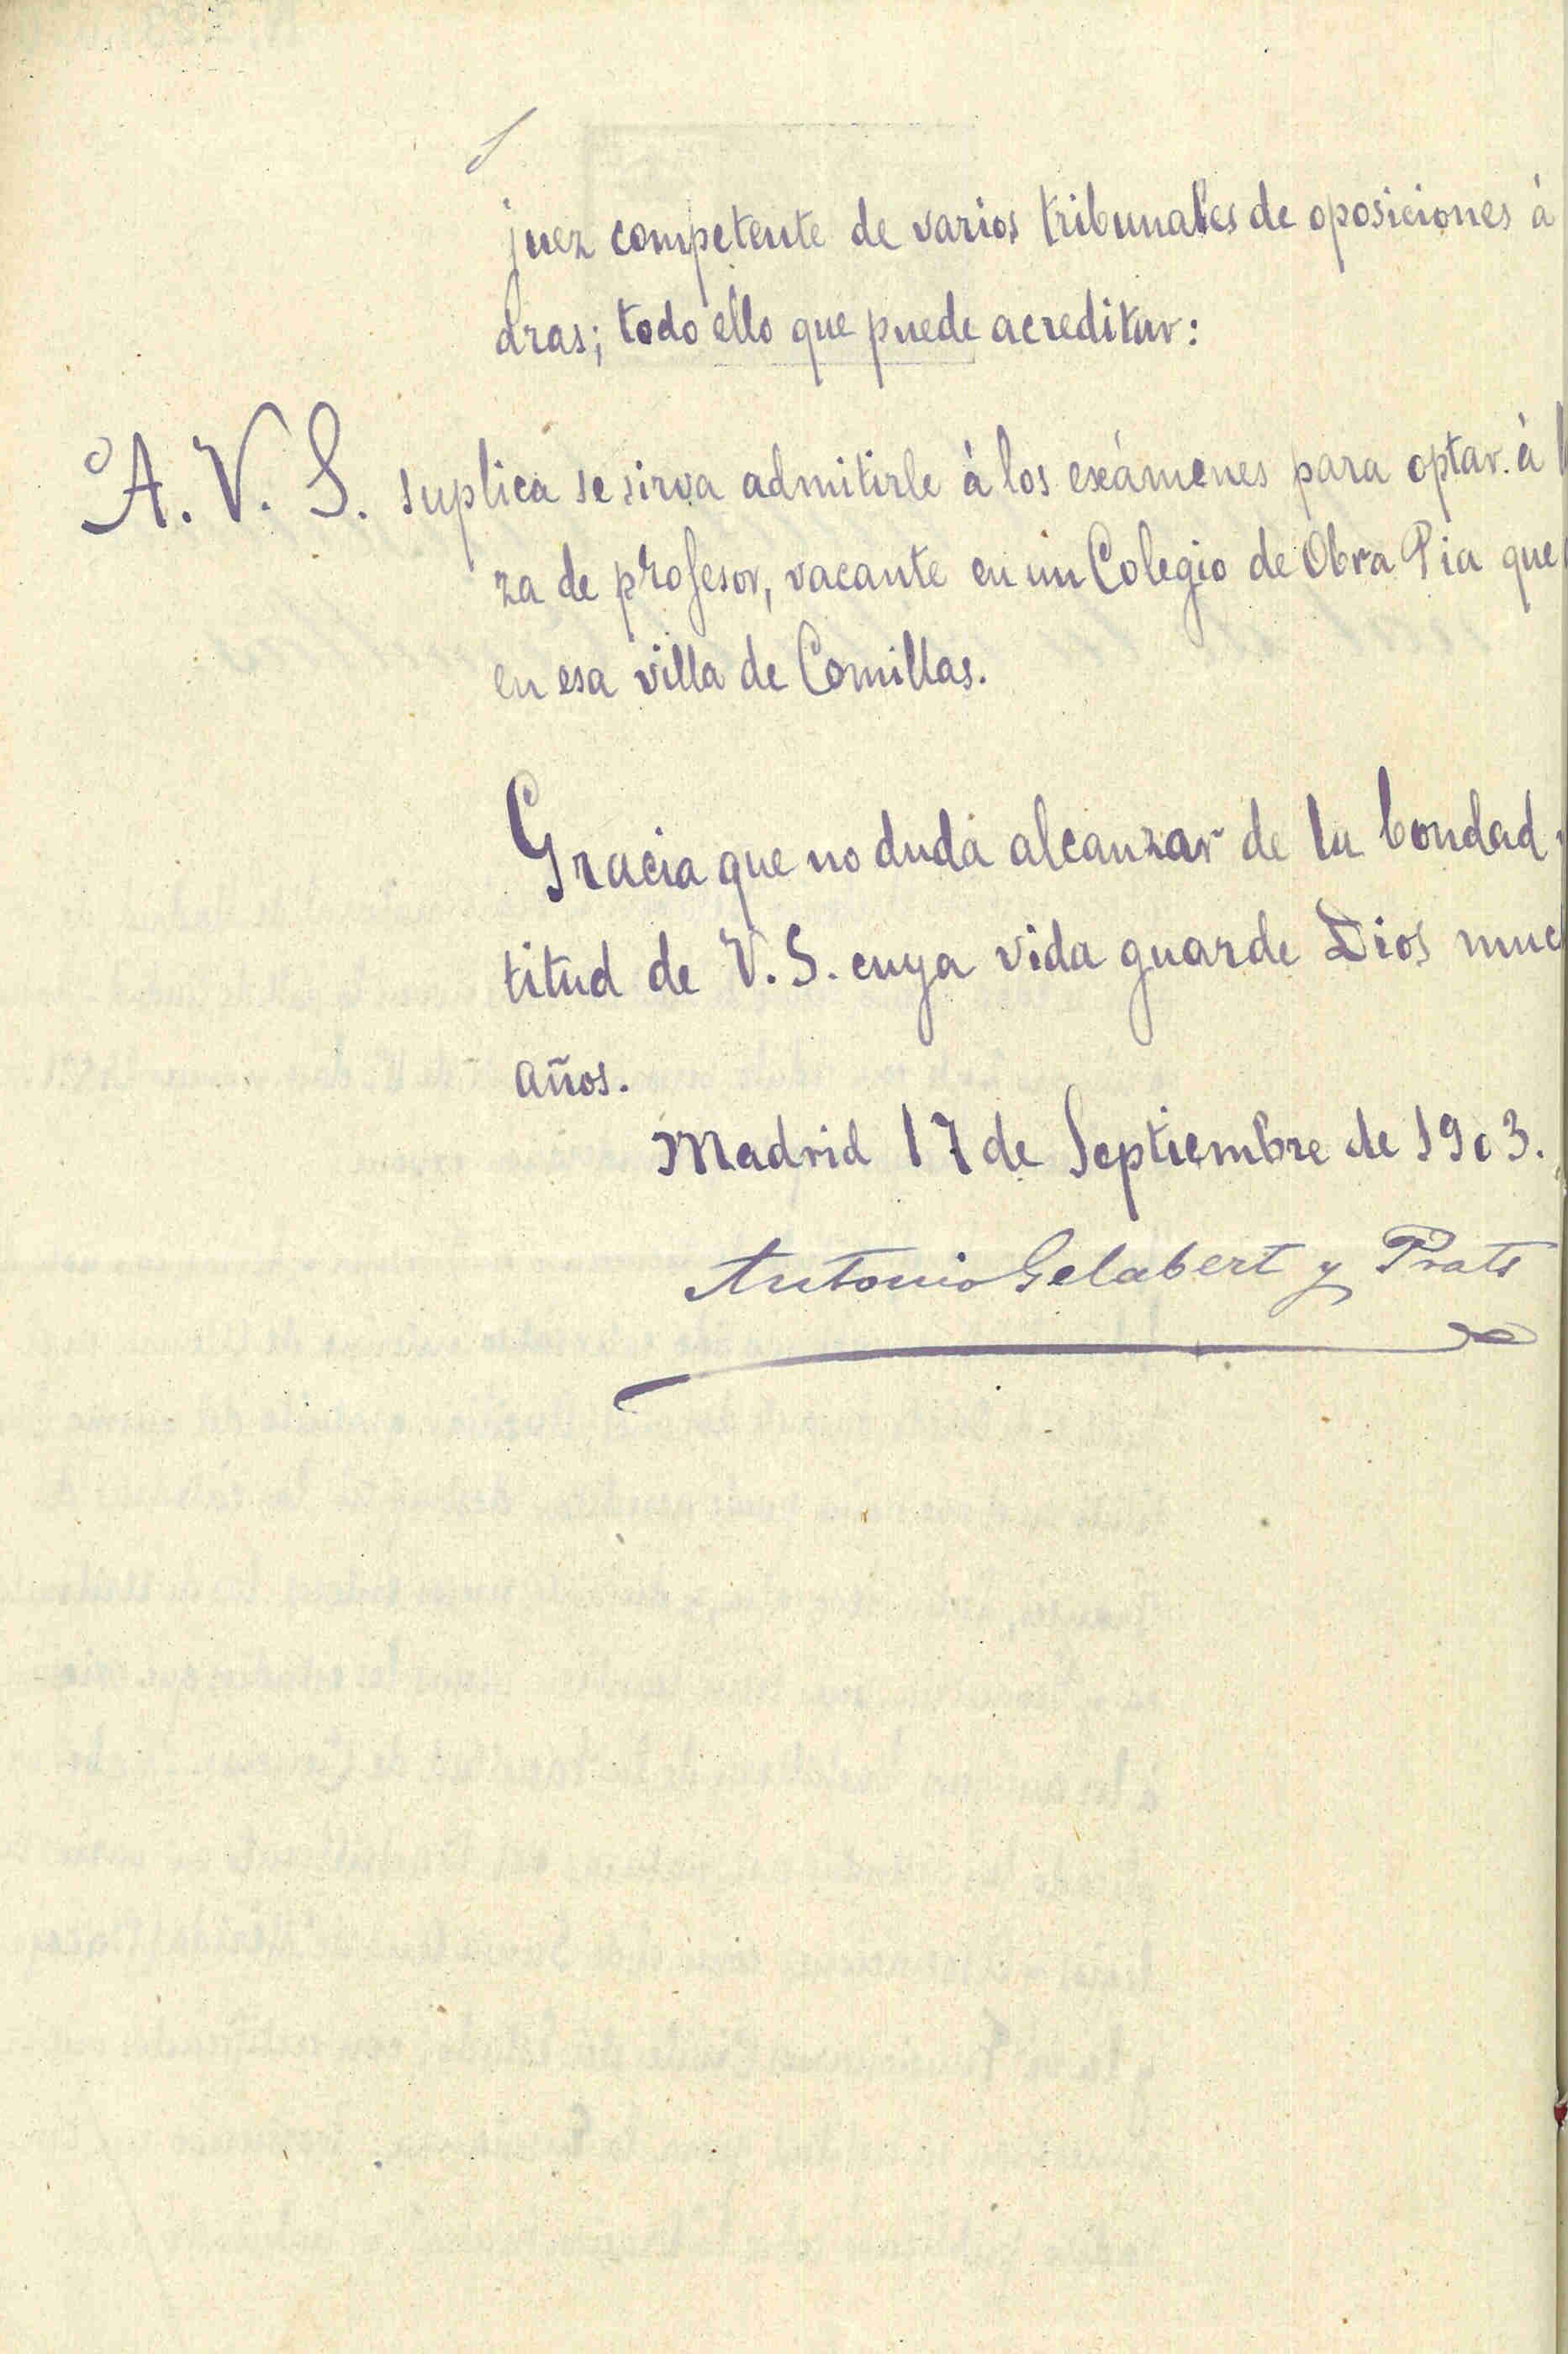 juez competente de varios tribunales de oposiciones à
dras; todo ello que puede acreditar:
A. V. S. suplica se sirva admitirle à los exámenes para optar à
za de profesor, vacante en un Colegio de Obra Pia que
en esa villa de Comillas.
Gracia que no duda alcanzar de la bondad
titud de V. S. cuya vida guarde Dios muc
años.
Madrid 17 de Septiembre de 1903.
Antonio Gelabert y Prats